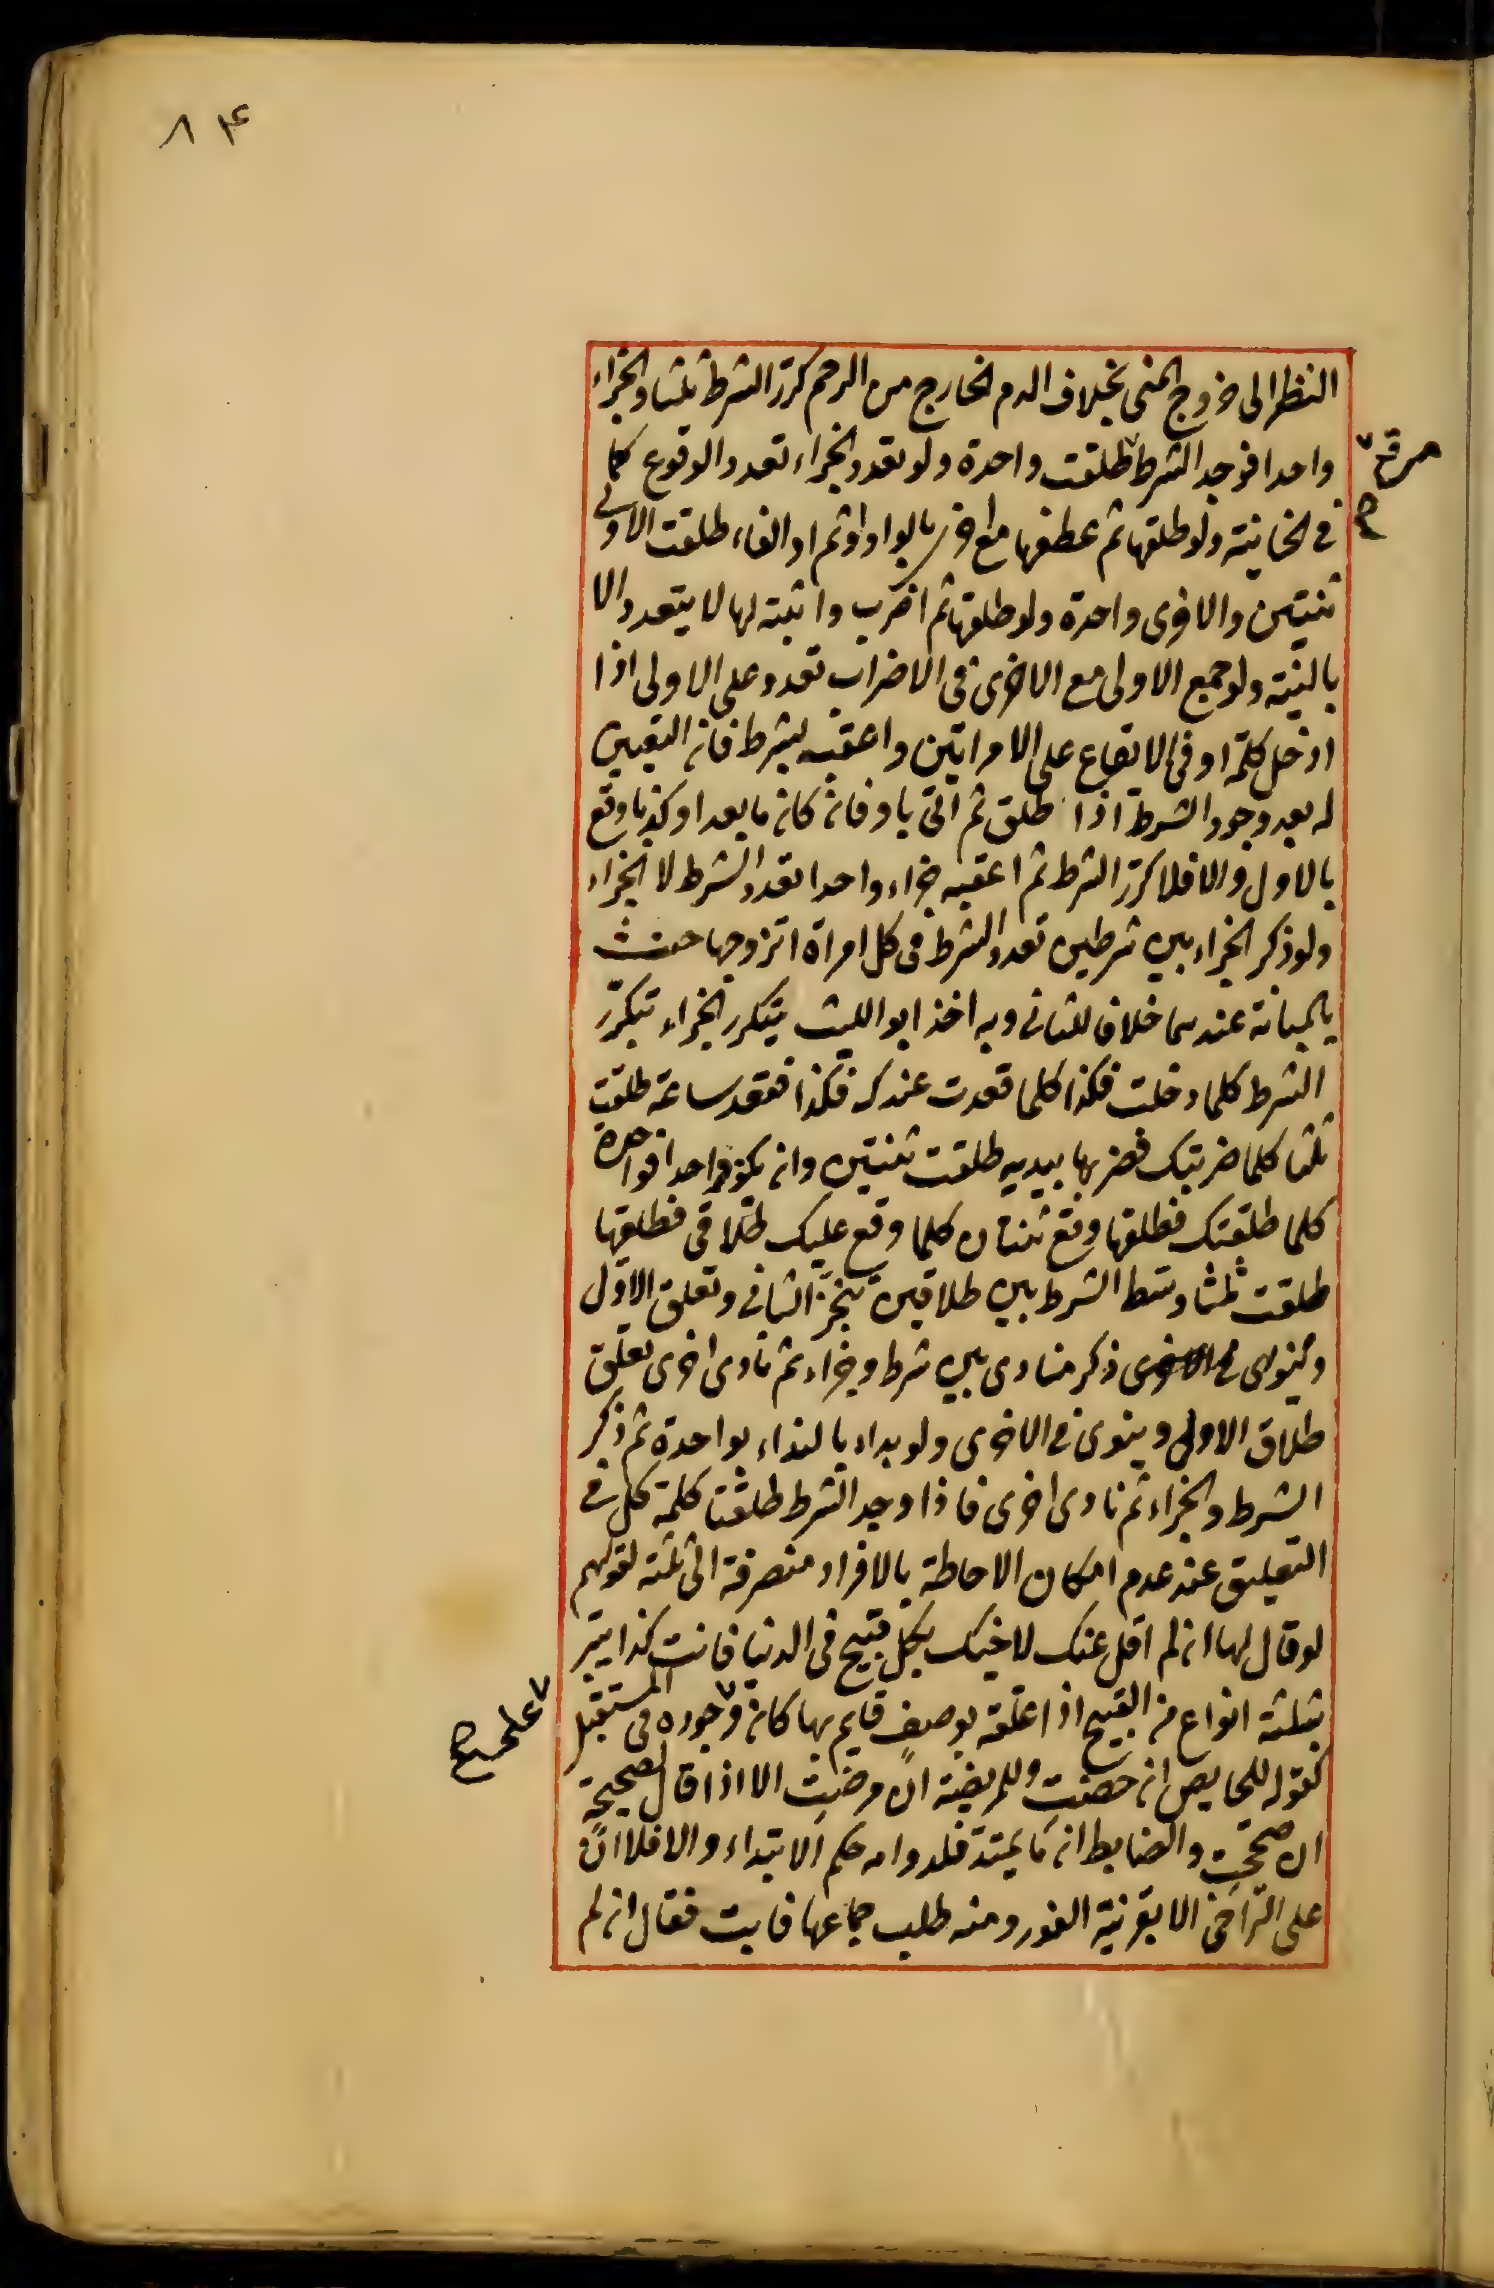 ۸۴
النظر الى خروج المنى بخلاف الدم الخارج من الرحم كرّر الشرط ثلثا والجزاء
واحدا فوجد الشرط طلقت واحدة ولو تعدد الجزاء تعدد الوقوع كما
مرة صح
فى الخانية ولو طلقها ثم عطفها مع اخرى بالواو او ثم او الفاء طلقت الاولى
ثنتين والاخرى واحدة ولو طلقها ثم اضرب واثبته لها لا يتعدد الا
بالنية ولو جمع الاولى مع الاخرى فى الاضراب تعدد على الاولى اذا
ادخل كلمة او فى الايقاع على الامراتين واعقبه بشرط فان التعيين
له بعد وجود الشرط اذا طلق ثم اتى باو فان كان ما بعد او كذبا وقع
بالاول والا فلا كرّر الشرط ثم اعقبه جزاء واحدا تعدد الشرط لا الجزاء
ولو ذكر الجزاء بين شرطين تعدد الشرط فى كل امراة اتزوجها حنث
بالمبانة عندهما خلافا للثانى وبه اخذ ابو الليث يتكرر الجزاء بتكرّر
الشرط كلما دخلت فكذا كلما قعدت عندك فكذا فقعد ساعة طلقت
ثلثا كلما ضربتك فضربها بيديه طلقت ثنتين وان بكف واحد فواحدة
كلما طلقتك فطلقها وقع ثنتان كلما وقع عليك طلاقى فطلقها
طلقت ثلثا وسّط الشرط بين طلاقين تنجّز الثانى وتعلق الاول
وينوى فى الاخرى ذكر منادى بين شرط وجزاء ثم نادى اخرى تعلّق
طلاق الاولى وينوى فى الاخرى ولو بداء بالنداء بواحدة ثم ذكر
الشرط والجزاء ثم نادى اخرى فاذا وجد الشرط طلقتا كلمة كل فى
التعليق عند عدم امكان الاحاطة بالافراد منصرفة الى ثلثة لقولهم
لو قال لها ان لم اقل عنك لاخيك بكل قبيح فى الدنيا فانت كذا يبر
بثلثة انواع من القبيح اذا علقه بوصف قايم بها كان وجوده فى المستقبل
على صح
كقوله للحايض ان حضت وللمريضة ان مرضت الا اذا قال لصحيحة
ان صححت والضابط ان ما يمتدّ فلدوامه حكم الابتداء والا فلا ان
على التراخى الا بقرنية الفور ومنه طلب جماعها فابت فقال ان لم